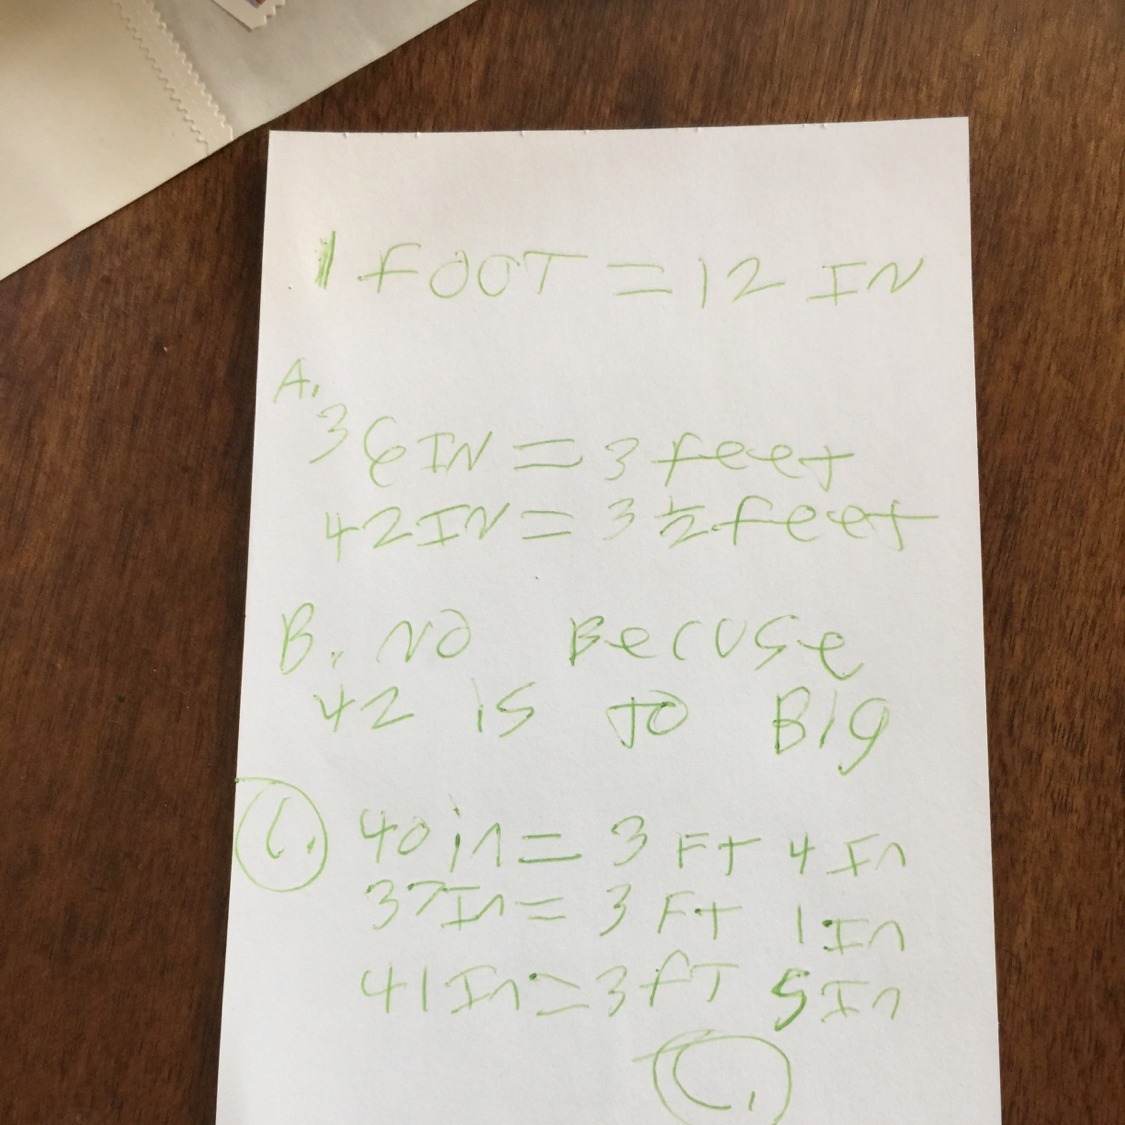 1 FOOT = 12 IN
A.
36IN = 3 feet
42IN = 3 ½ feet
B. NO BecUSe
42 is to Big
C. 40in = 3 Ft 4 In
37In = 3 Ft 1 In
41In = 3 fT 5 In
C.